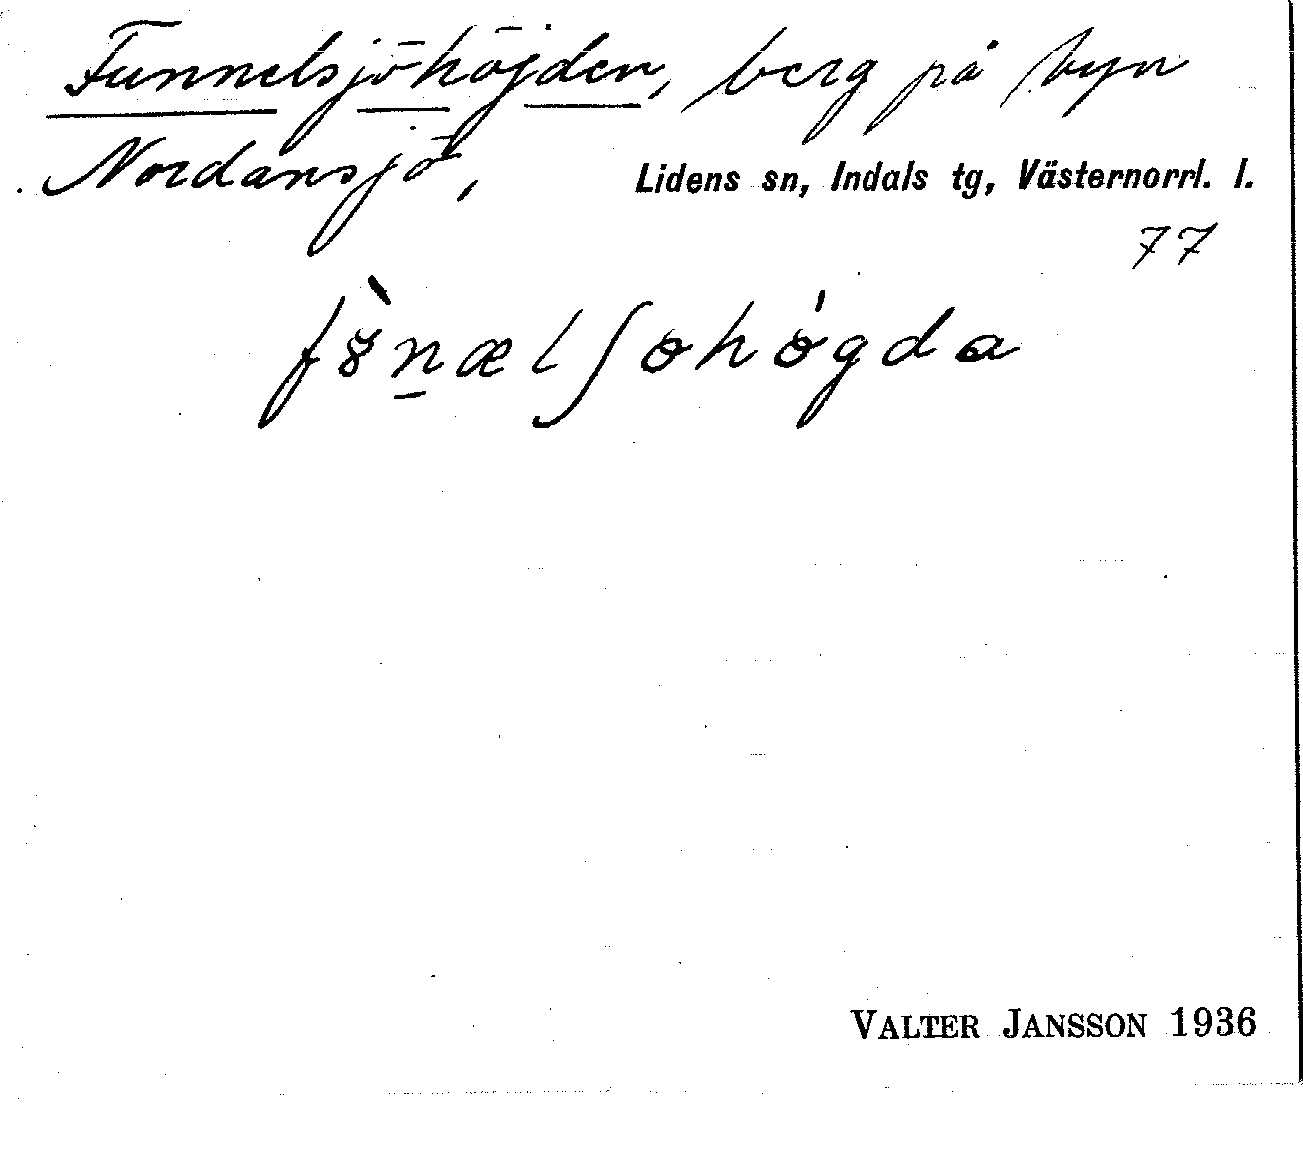 Funnelsjöhöjden, berg på byn
Nordansjö, Lidens sn, Indals tg, Västernorrl. l.
77
VALTER JANSSON 1936